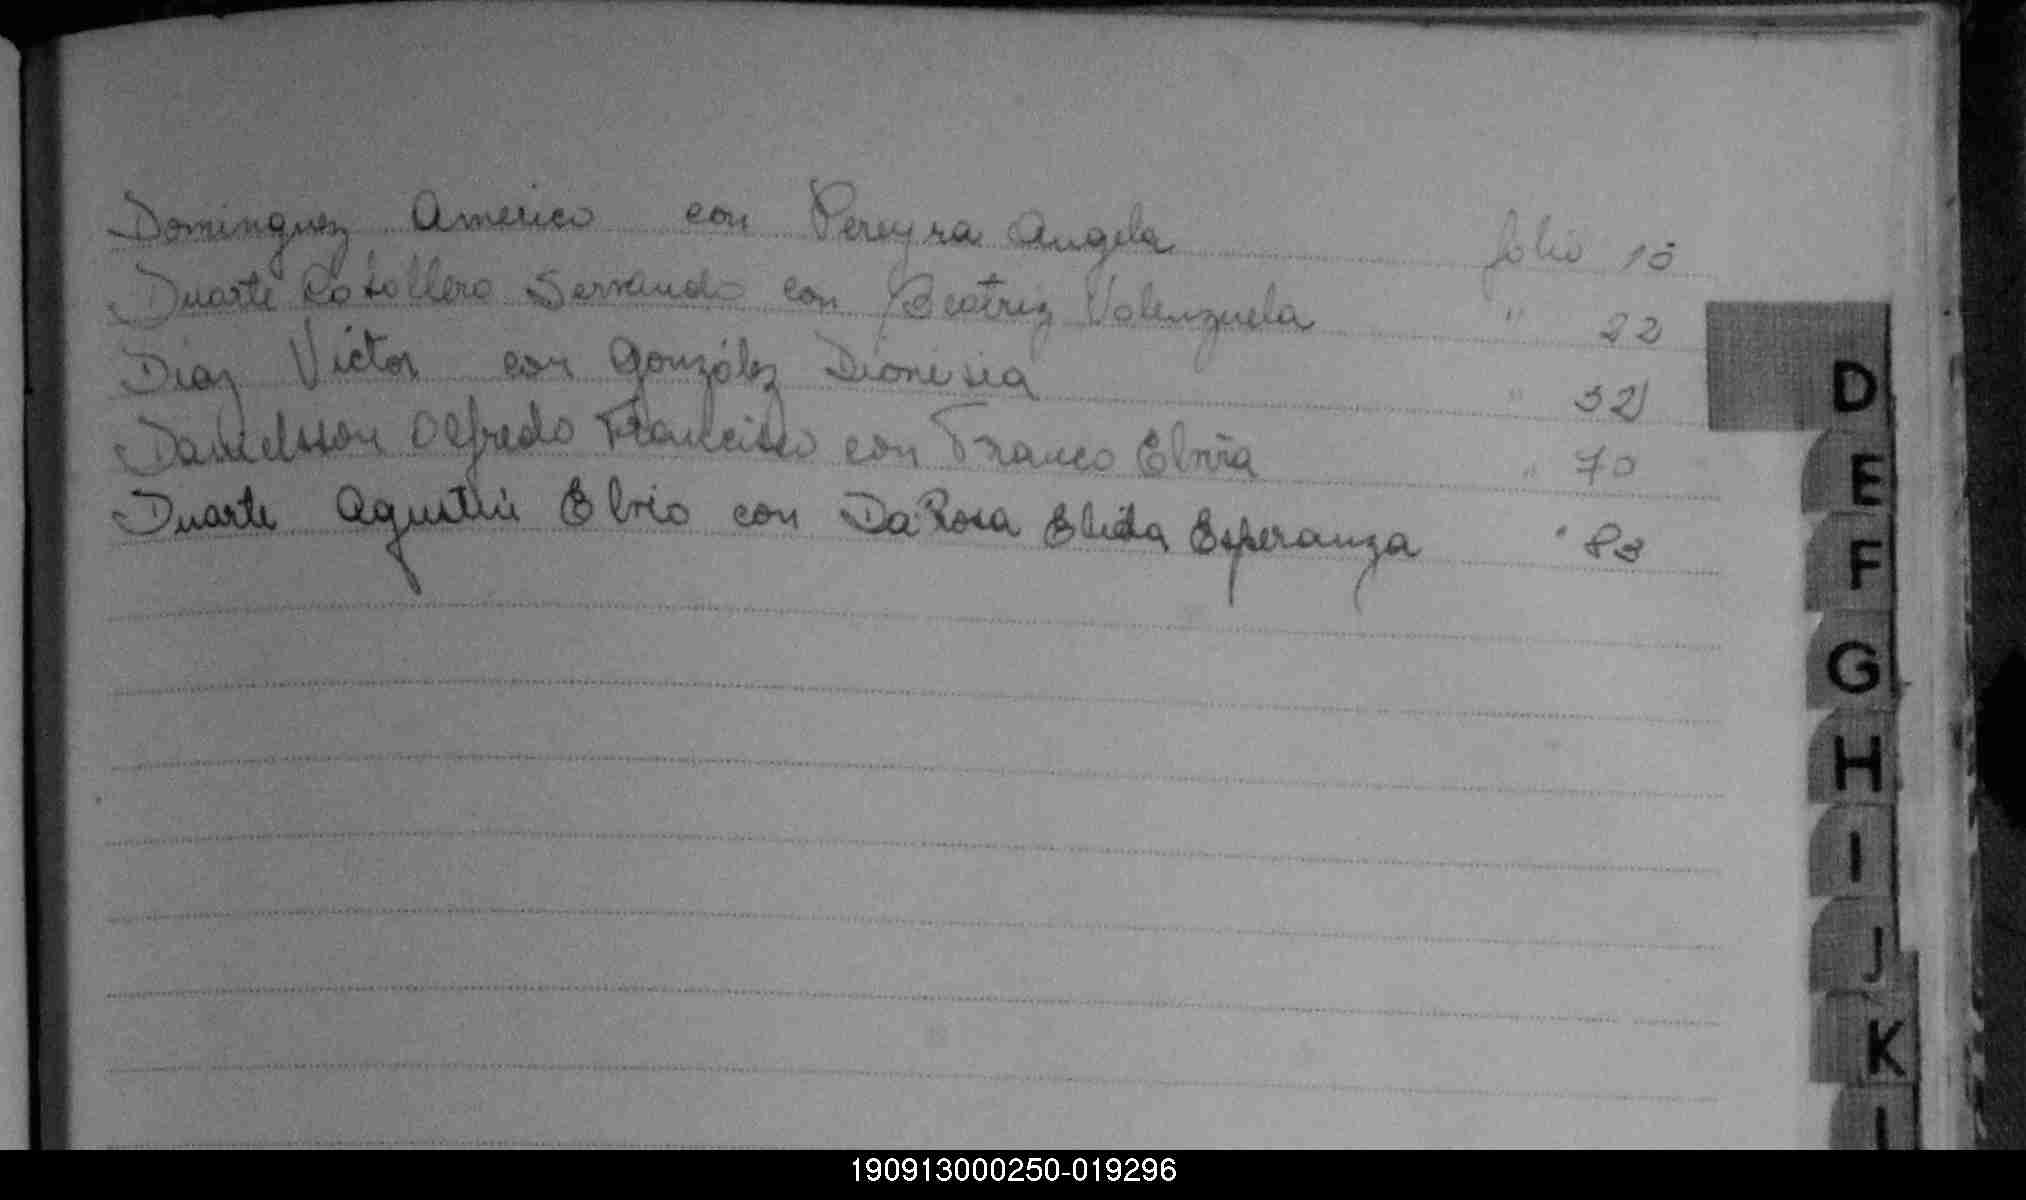 Dominguez Americo con Pereyra Angela folio 10
Duarte Servando con Beatriz Valenzuela " 22
Diaz Victor con González Dionisia " 32
Danielsson Alfredo Francisco con Franco Elvira " 70
Duarte Agustin Elvio con Da Rosa Elida Esperanza " 83
D
E
F
G
H
I
J
K
190913000250-019296